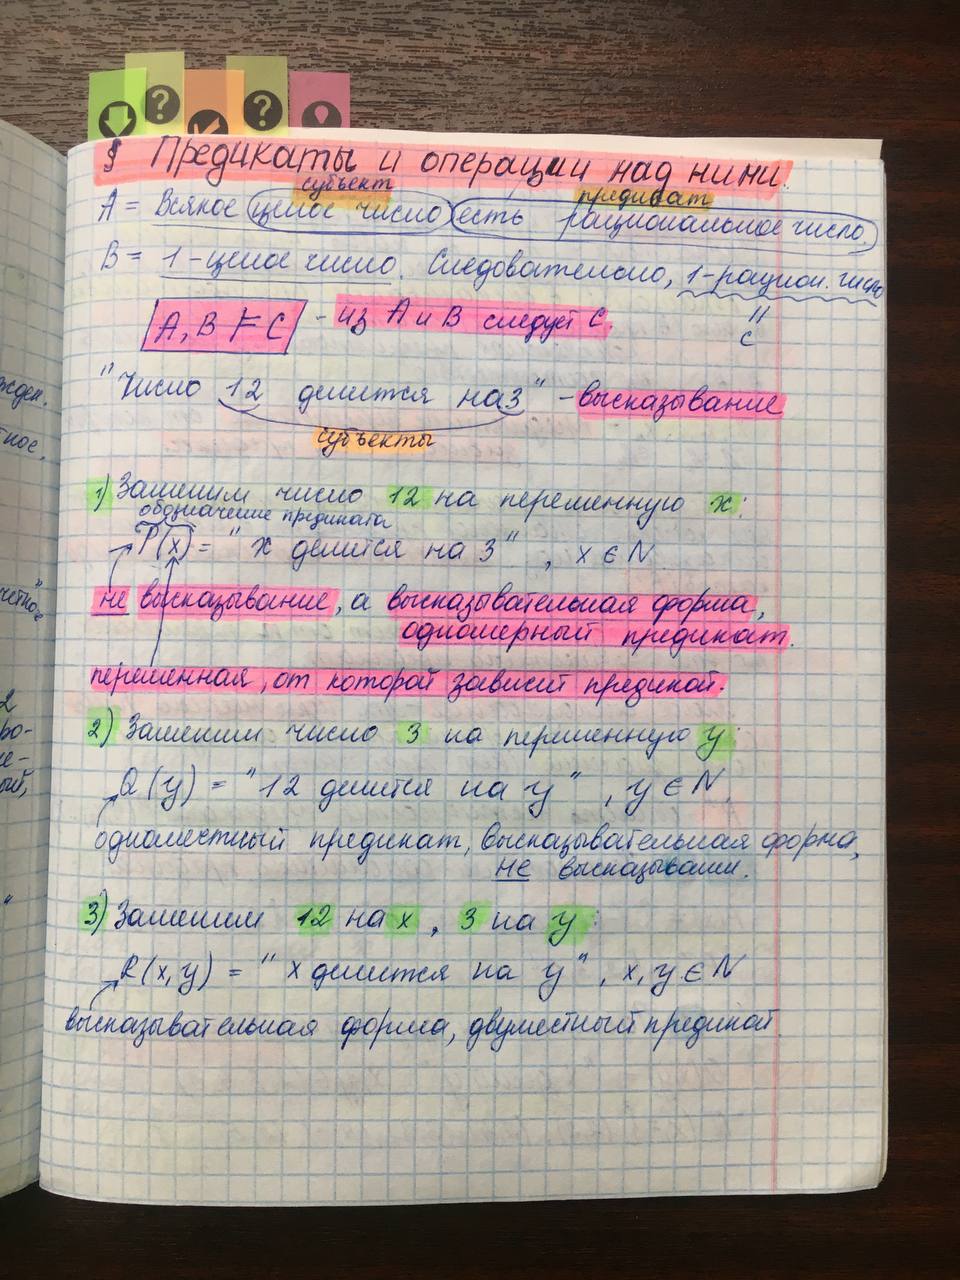 § Предикаты и операции над ними.
субъект предикат
A = Всякое целое число есть рациональное число.
B = 1 - целое число. Следовательно, 1 - рацион. число
A, B ⊨ C - из A и B следует C. " c
"Число 12 делится на 3" - высказывание
субъекты
1) Заменим число 12 на переменную x:
обозначение предиката
P(x) = " x делится на 3" , x ∈ N
не высказывание, а высказывательная форма,
одномерный предикат.
переменная, от которой зависит предикат.
2) Заменим число 3 на переменную y:
Q(y) = "12 делится на y" , y ∈ N.
одноместный предикат, высказывательная форма,
не высказывание.
3) Заменим 12 на x , 3 на y:
R(x, y) = " x делится на y" , x, y ∈ N
высказывательная форма, двуместный предикат